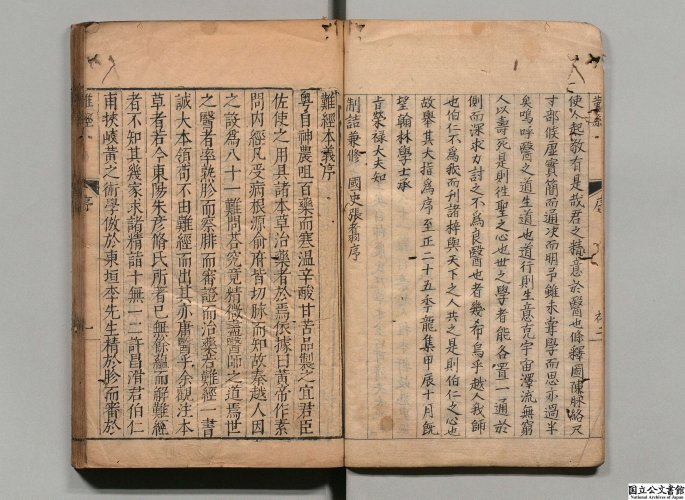 使人起敬有是哉君之精意於醫也條釋圖陳脉絡尺
寸部候虛實簡而通决而明予雖未嘗學而思亦過半
矣嗚呼醫之道生道也道行則生意充宇宙澤流無窮
人以壽死是則徃聖之心也世之學者能各置一通於
側而深求力討之不為良醫也者幾希烏乎越人我師
也伯仁不為我而刋諸梓與天下之人共之是則伯仁之心也
故舉其大指為序至正二十五季龍集甲辰十月旣
望翰林學士承
旨榮禄大夫知
制誥兼修 國史張翥序
難經本義序
粤自神農咀百藥而寒溫辛酸甘苦品製之宜君臣
佐使之用具諸本草治藥者於焉依據由黃帝作素
問內經凡受病根源俞府皆切脉而知故秦越人因
之設為八十一難問荅究竟精微盡醫師之道焉世
之醫者率熟胗而察脉而審證而治藥若難經一書
誠大本領苟不由難經而出其亦庸醫乎余觀注本
草者若今東陽朱彦脩氏所著已無餘蘊而解難經
者不知其幾家求諸精詣十無一二許昌滑君伯仁
甫挾岐黃之術學倣於東垣李先生精於胗而審於
難經
序
一
国立公文書館
National Archives of Japan